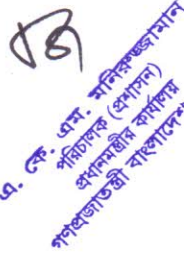 এ. কে. এম. মনিরুজ্জামান
পরিচালক (প্রশাসন)
প্রধানমন্ত্রীর কার্যালয়
গণপ্রজাতন্ত্রী বাংলাদেশ